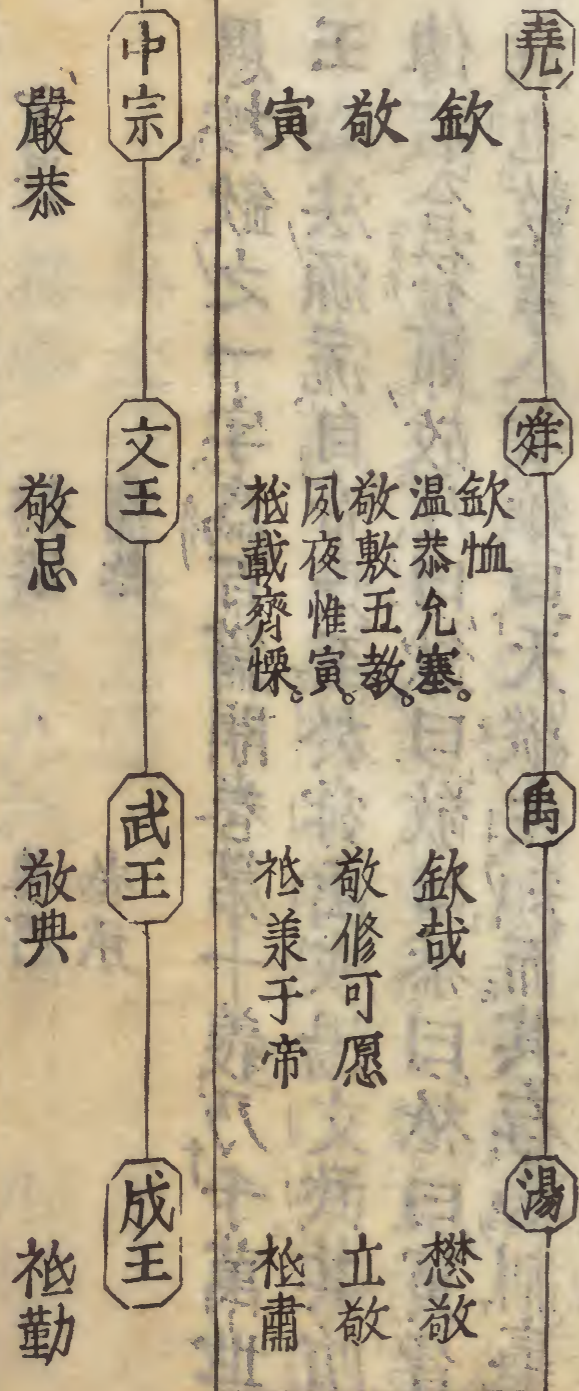 堯
欽
敬
寅
舜
欽恤
温恭允塞。
敬敷五教。
夙夜惟寅。
祗載齊慄。
禹
欽哉
敬修可愿
祗承于帝
湯
懋敬
立敬
祗肅
中宗
嚴恭
文王
敬忌
武王
敬典
成王
祗勤